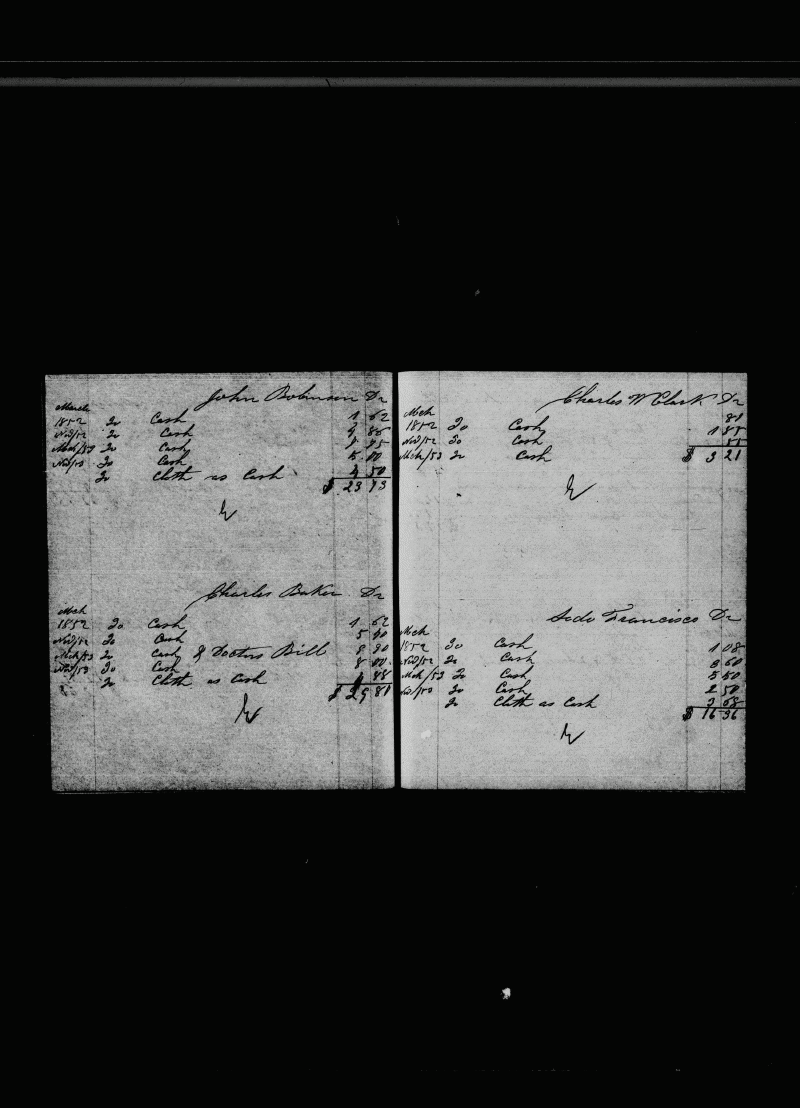 John Robinson Dr
March
1852 To Cash 1 62
Nov/52 To Cash
Mch/53 To Cash
Nov/53 To Cash 5 00
To Cloth as Cash 4 50
$ 23
Charles Baker Dr
Mch
1852 To Cash 1 62
Nov/52 To Cash 5 40
Mch/53 To Cash & Doctors Bill 8
Nov/53 To Cash 8 00
To Cloth as Cash 4 88
$ 29 81
Charles W Clark Dr
Mch 81
1852 To Cash 1 85
Nov/52 To Cash 55
Mch/53 To Cash $ 3 21
Francisco Dr
Mch
1852 To Cash 1 08
Nov/52 To Cash 3 60
Mch/53 To Cash 5 50
Nov/53 To Cash 2 50
To Cloth as Cash 3 68
$ 16 36